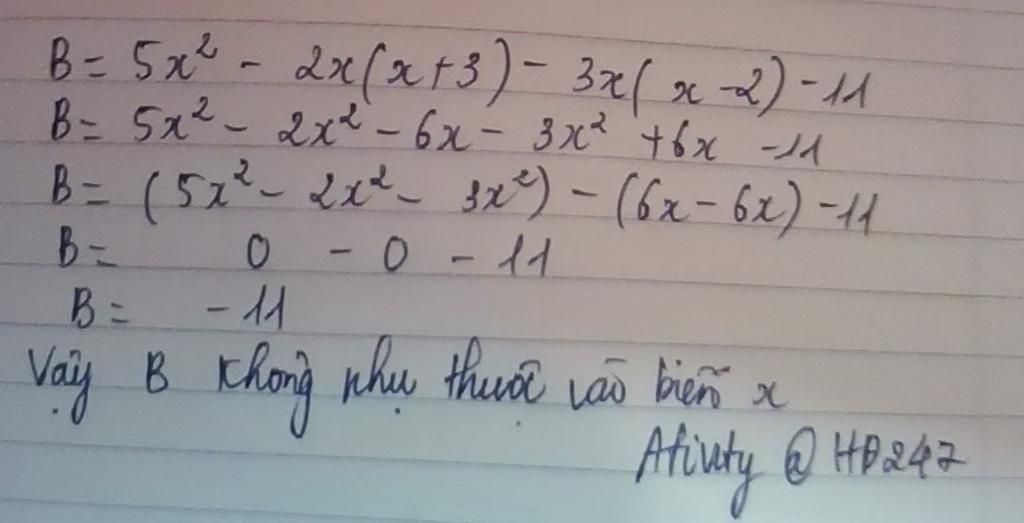 B = 5x² - 2x(x+3) - 3x(x-2) - 11
B = 5x² - 2x² - 6x - 3x² + 6x - 11
B = (5x² - 2x² - 3x²) - (6x - 6x) - 11
B = 0 - 0 - 11
B = - 11
Vậy B không nhụ thuộc vào biến x
@ HĐ247